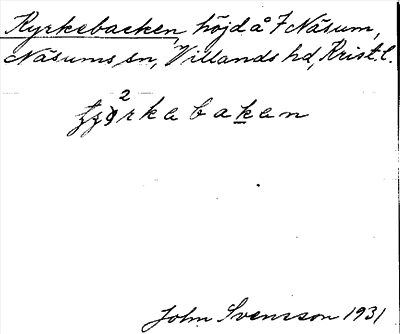 Kyrkebacken, höjd å 7 Näsum,
Näsums sn, Villands hd, Krist. l.
2
rkebaken
John Svensson 1931